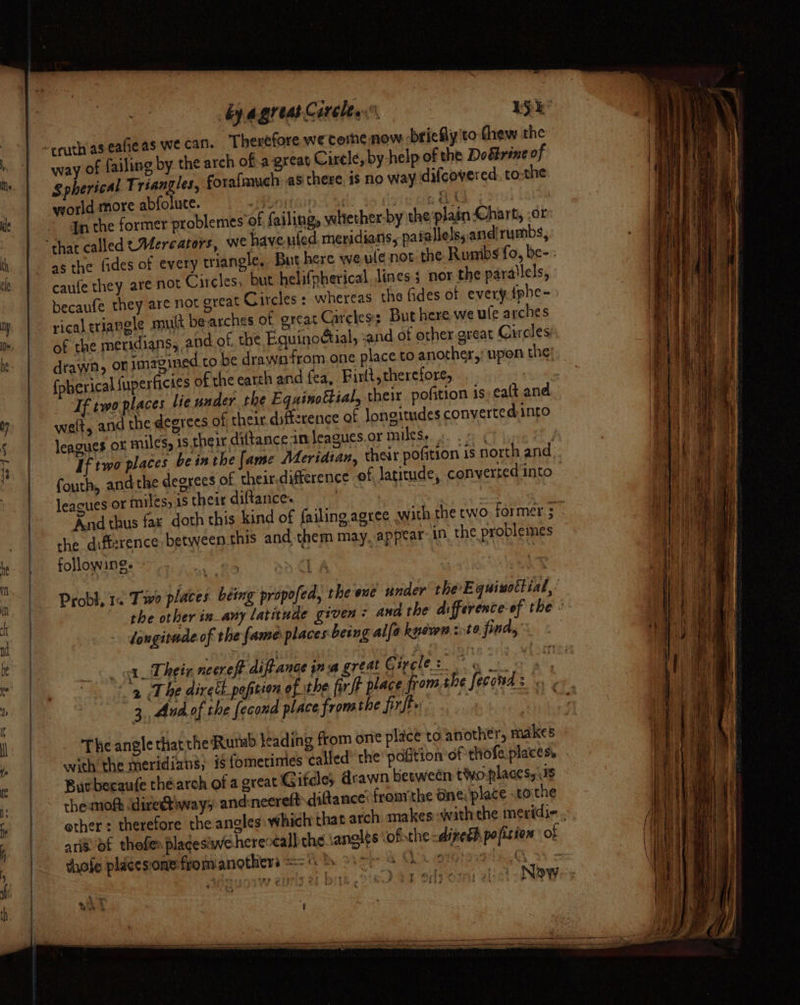 by a great Circle.
truth as easie as we can. Therefore we come now briefly to shew the
way of sailing by the arch of a great Circle, by help of the Doctrine of
Spherical Triangles, forasmuch as there is no way discovered to the
world more absolute.
In the former problemes of sailing, whether by the plain Chart, or
that called Mercators, we have used meridians, parallels, and rumbs,
as the sides of every triangle. But here we use not the Rumbs so, be-
cause they are not Circles, but helispherical lines; nor the parallels,
because they are not great Circles: whereas the sides of every sphe-
rical triangle must be arches of great Circles: But here we use arches
of the meridians, and of the Equinoctial, and of other great Circles
drawn, or imagined to be drawn from one place to another, upon the
spherical superficies of the earth and sea, First, therefore,
If two places lie under the Equinoctial, their position is east and
west, and the degrees of their difference of longitudes converted into
leagues or miles, is their distance in leagues or miles.
If two places be in the same Meridian, their position is north and
south, and the degrees of their difference of latitude, converted into
leagues or miles, is their distance.
And thus far doth this kind of sailing agree with the two former;
the difference between this and them may appear in the problemes
following.
Probl. 1. Two places being proposed, the one under the Equinoctial,
the other in any latitude given: and the difference of the
longitude of the same places being also known: to find,
1 Their neerest distance in a great Circle:
2 The direct position of the first place from the second:
3 And of the second place from the first.
The angle that the Rumb leading from one place to another, makes
with the meridians, is sometimes called the position of those places.
But because the arch of a great Circle, drawn between two places, is
the most direct way, and neerest distance from the one place to the
other: therefore the angles which that arch makes with the meridi-
ans of those places, we here call the angles of the direct position of
those places one from another.
Now